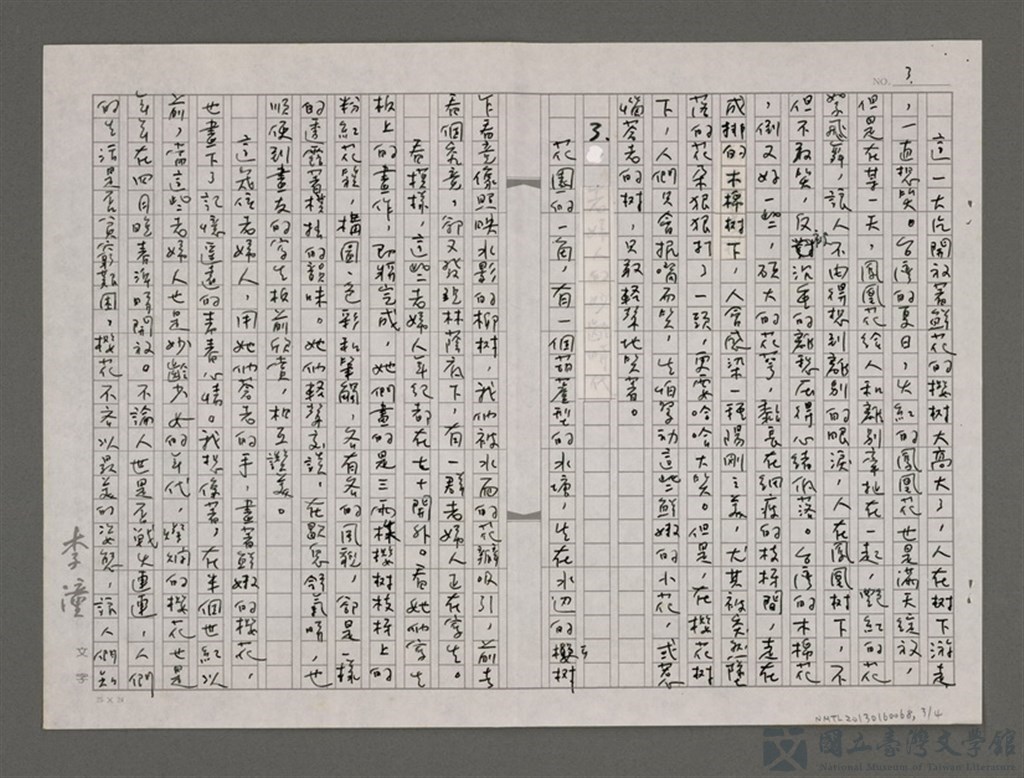 NO. 3.
這一大片開放著鮮花的櫻樹太高大了，人在樹下游走
，一直想笑。台灣的夏日，火紅的鳳凰花也是滿天綻放，
但是在某一天，鳳凰花給人和離別牽扯在一起，艷紅的花
絮飛舞，讓人不由得想到離別的眼淚，人在鳳凰樹下，不
但不敢笑，反被沉重的離愁壓得心緒低落。台灣的木棉花
，倒又好一些，碩大的花萼，黏長在細疲的枝梢間，走在
成排的木棉樹下，人會感染一種陽剛之美，尤其被突然墜
落的花朵狠狠打了一頭，更要哈哈大笑。但是，在櫻花樹
下，人們只會抿嘴而笑，生怕驚動這些鮮嫩的小花，或惹
惱蒼老的樹，只敢輕聲地笑著。
3.
花園的一角，有一個葫蘆型的水塘，生在水边的櫻樹
乍看竟像照映水影的柳樹，我們被水面的花瓣吸引，前去
看個究竟，卻又發現林蔭底下，有一群老婦人正在寫生。
看模樣，這些老婦人年紀都在七十開外。看她們寫生
板上的畫作，即將完成，她們畫的是三兩株櫻樹枝梢上的
粉紅花點，構圖、色彩和筆觸，各有各的風貌，卻是一樣
的透露著樸拙的韻味。她們輕聲交談，在歇息舒氣時，也
順便到畫友的寫生板前欣賞，相互讚美。
這幾位老婦人，用她們蒼老的手，畫著鮮嫩的櫻花，
也畫下了記憶遙遠的青春心情。我想像著，在半個世紀以
前，當這些老婦人也是妙齡少女的年代，燦爛的櫻花也是
年年在四月晚春準時開放。不論人世是否戰火連連，人們
的生活是否貧窮艱困，櫻花不吝以最美的姿態，讓人們知
李潼
文字
25 X 24
NMTL20130160068, 3/4
國立臺灣文學館
National Museum of Taiwan Literature